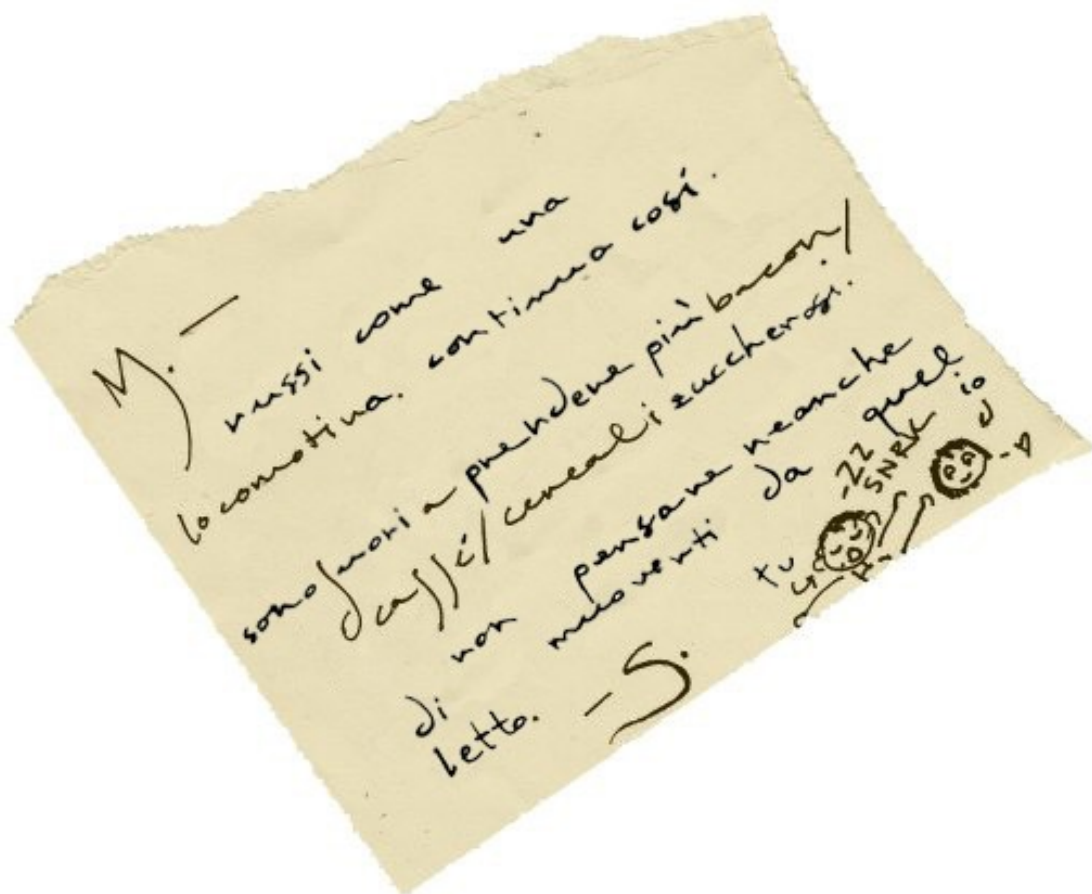 M. —
russi come una
locomotiva. continua cosí.
sono fuori a prendere più bacon/
caffé/cereali zuccherosi.
non pensare neanche
di muoverti da quel
letto. —S.
-ZZ
SNRK
tu
io